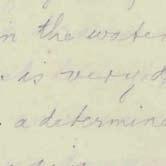 in the water
is very
a determine